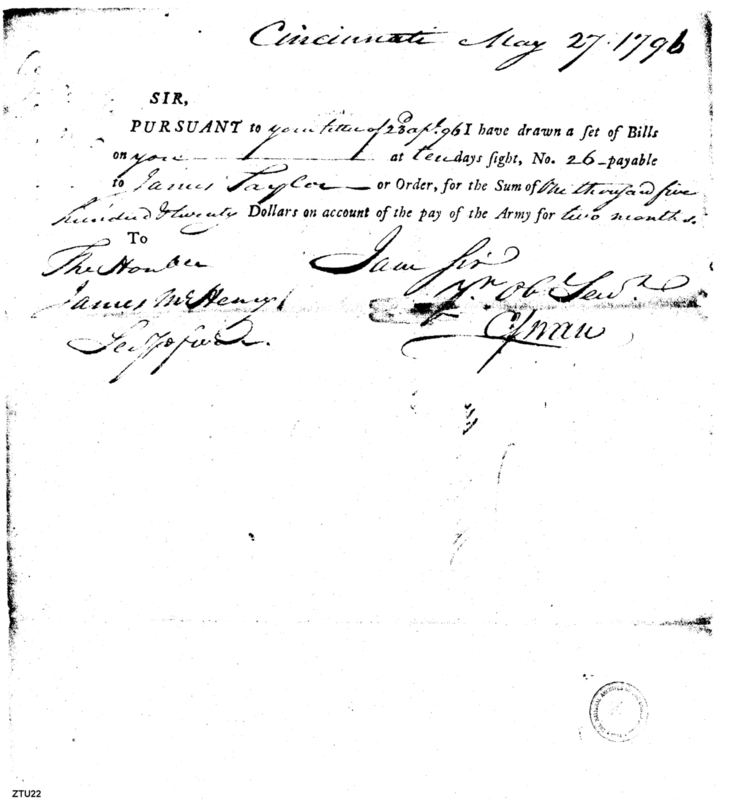 Cincinnati May 27. 1796
SIR,
PURSUANT to your letter of 2d ap. 96 I have drawn a set of Bills
on you at ten days sight, No. 26 payable
to James Taylor or Order, for the Sum of One thousand five
hundred & twenty Dollars on account of the pay of the Army for two months.
To
The Honble
I am Sir
James McHenry
Yr Ob Servt
Secy of War.
C Swan
ZTU22